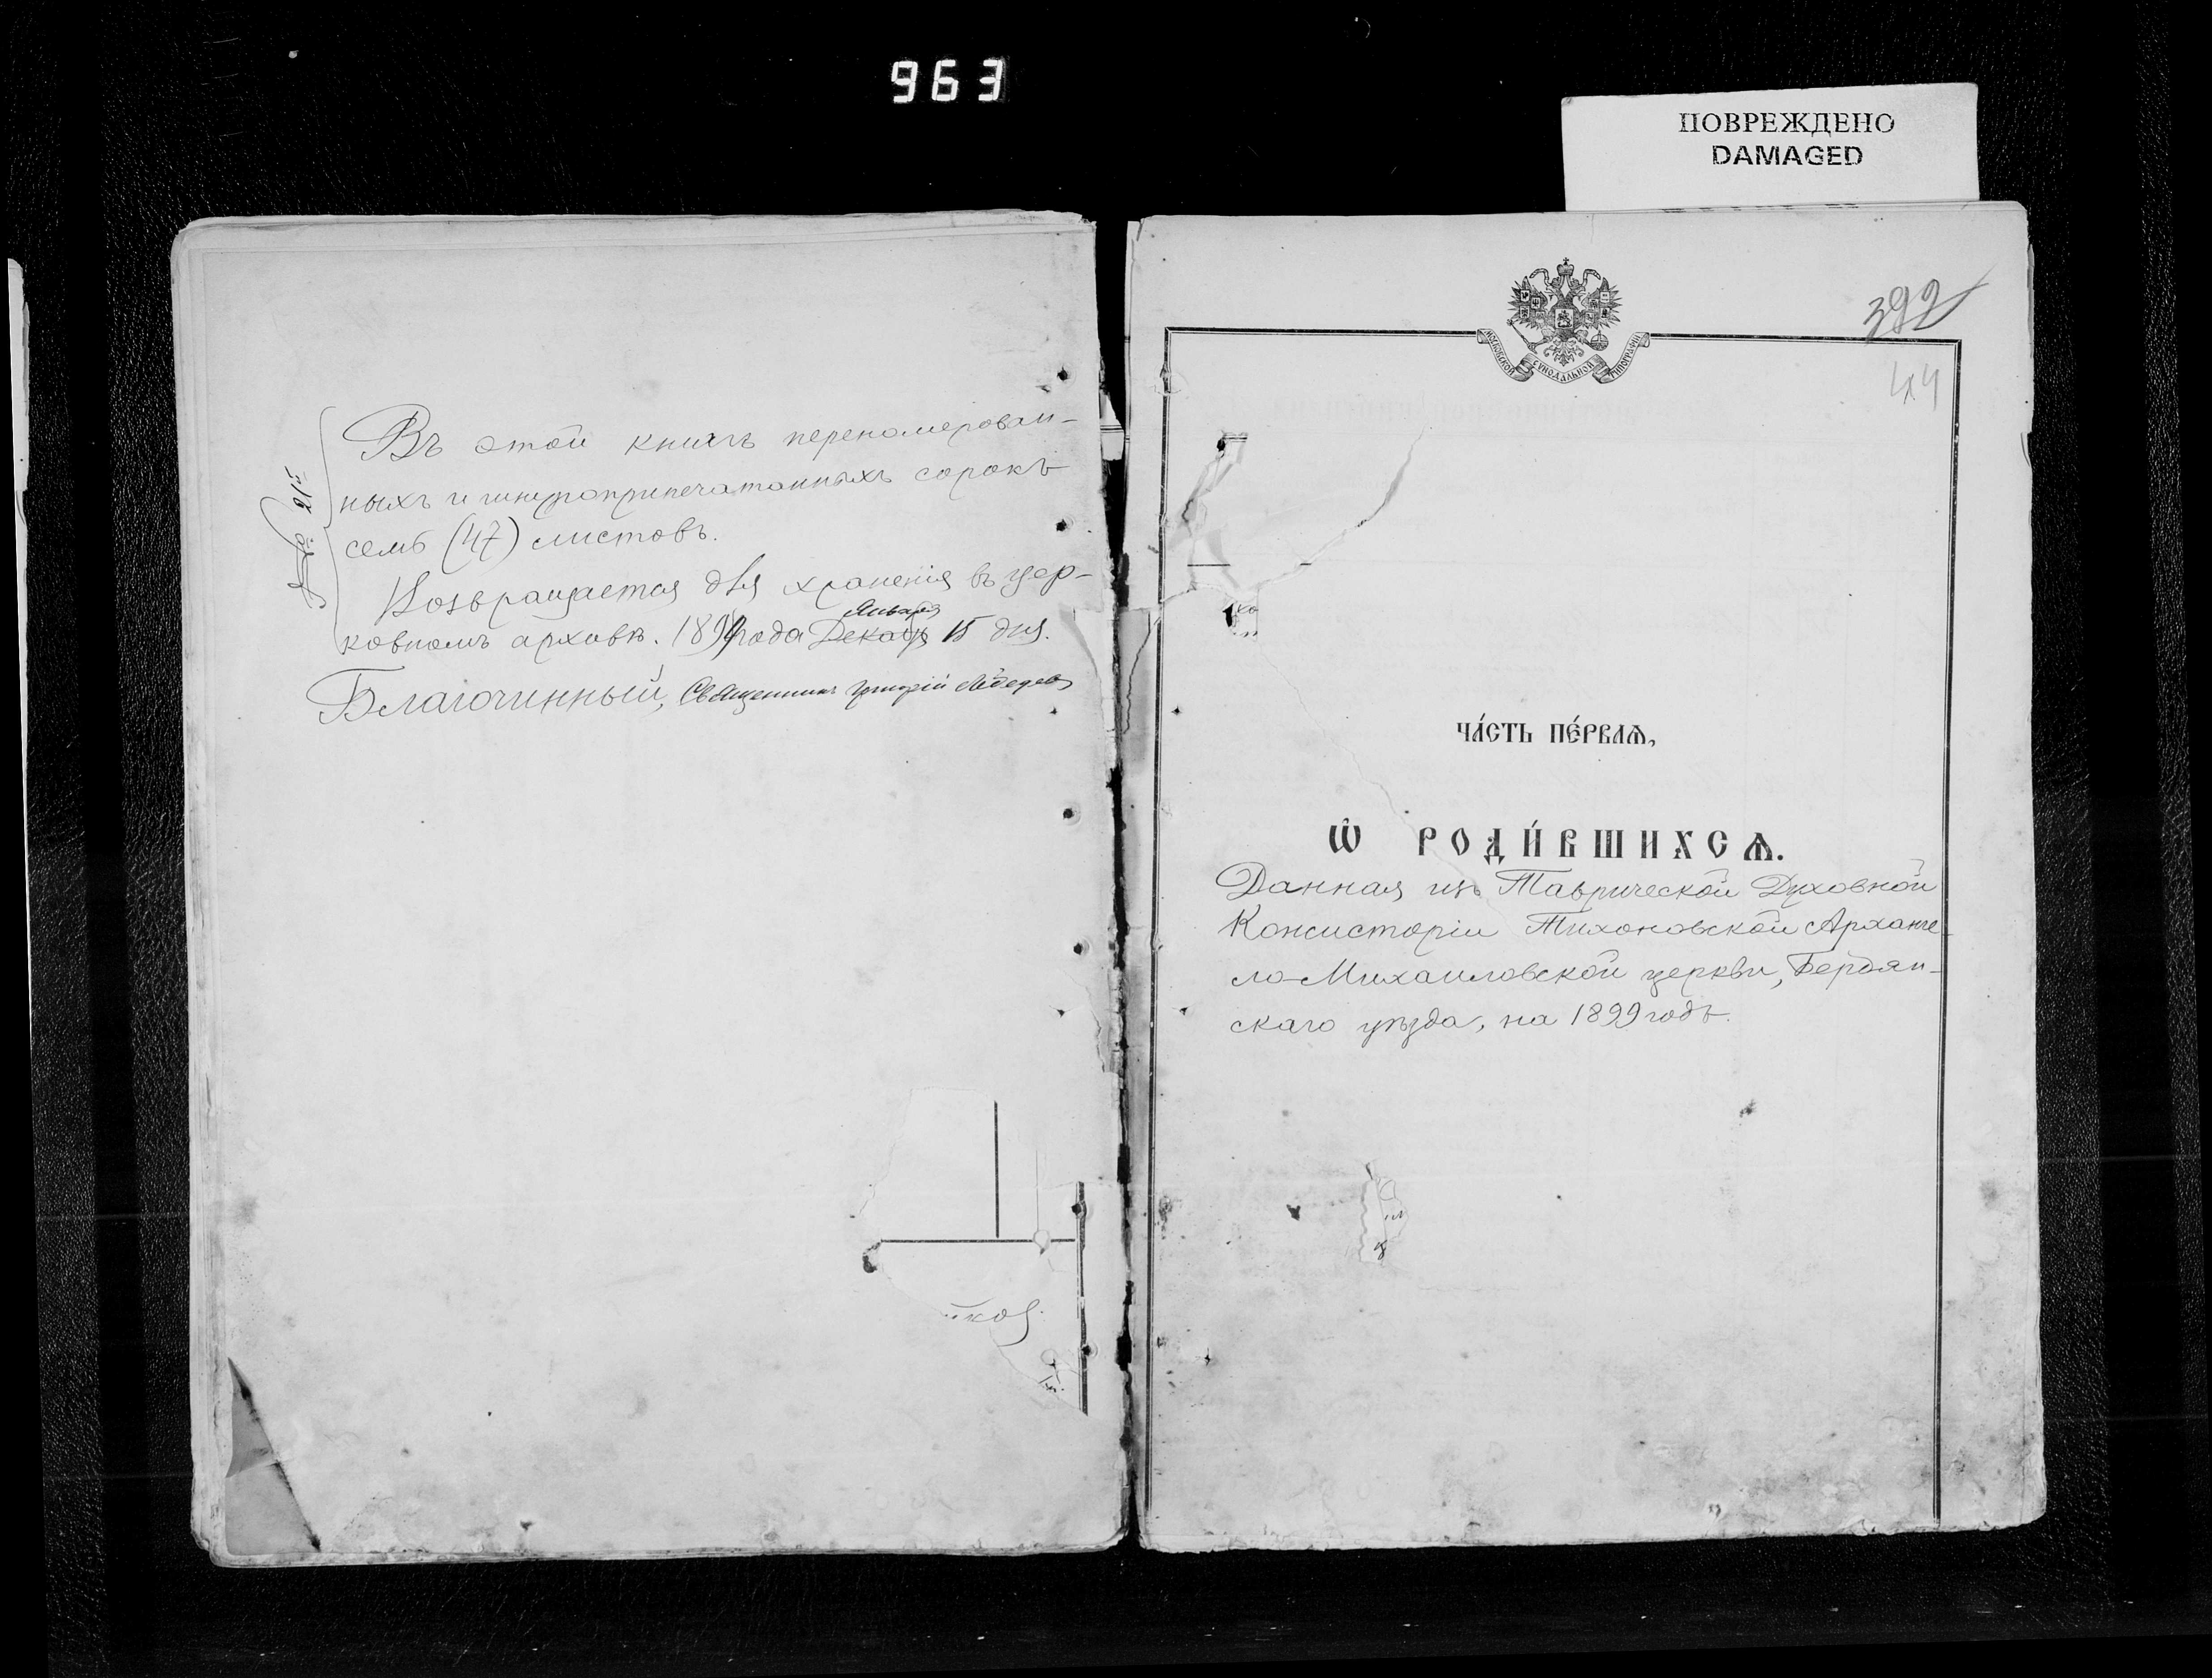 963
ПОВРЕЖДЕНО
DAMAGED
Въ этой книгѣ переномерован-
ныхъ и шнуроприпечатанныхъ сорокъ
семь (47) листовъ.
Возвращается для храненія въ цер-
Января
ковномъ архивѣ. 1899 года Декаб 15 дня.
Благочинный, Священникъ Григорій
№ 16
392
44
МОСКОВСКОЙ СѴНОДАЛЬНОЙ ТИПОГРАФІИ
ЧА́СТЬ ПЕ́РВАѦ,
Ѡ҆ РОДИ́ВШИХСѦ.
Данная изъ Таврической Духовной
Консисторіи Тихоновской Арханге-
ло-Михаиловской церкви, Бердян-
скаго уѣзда, на 1899 годъ.